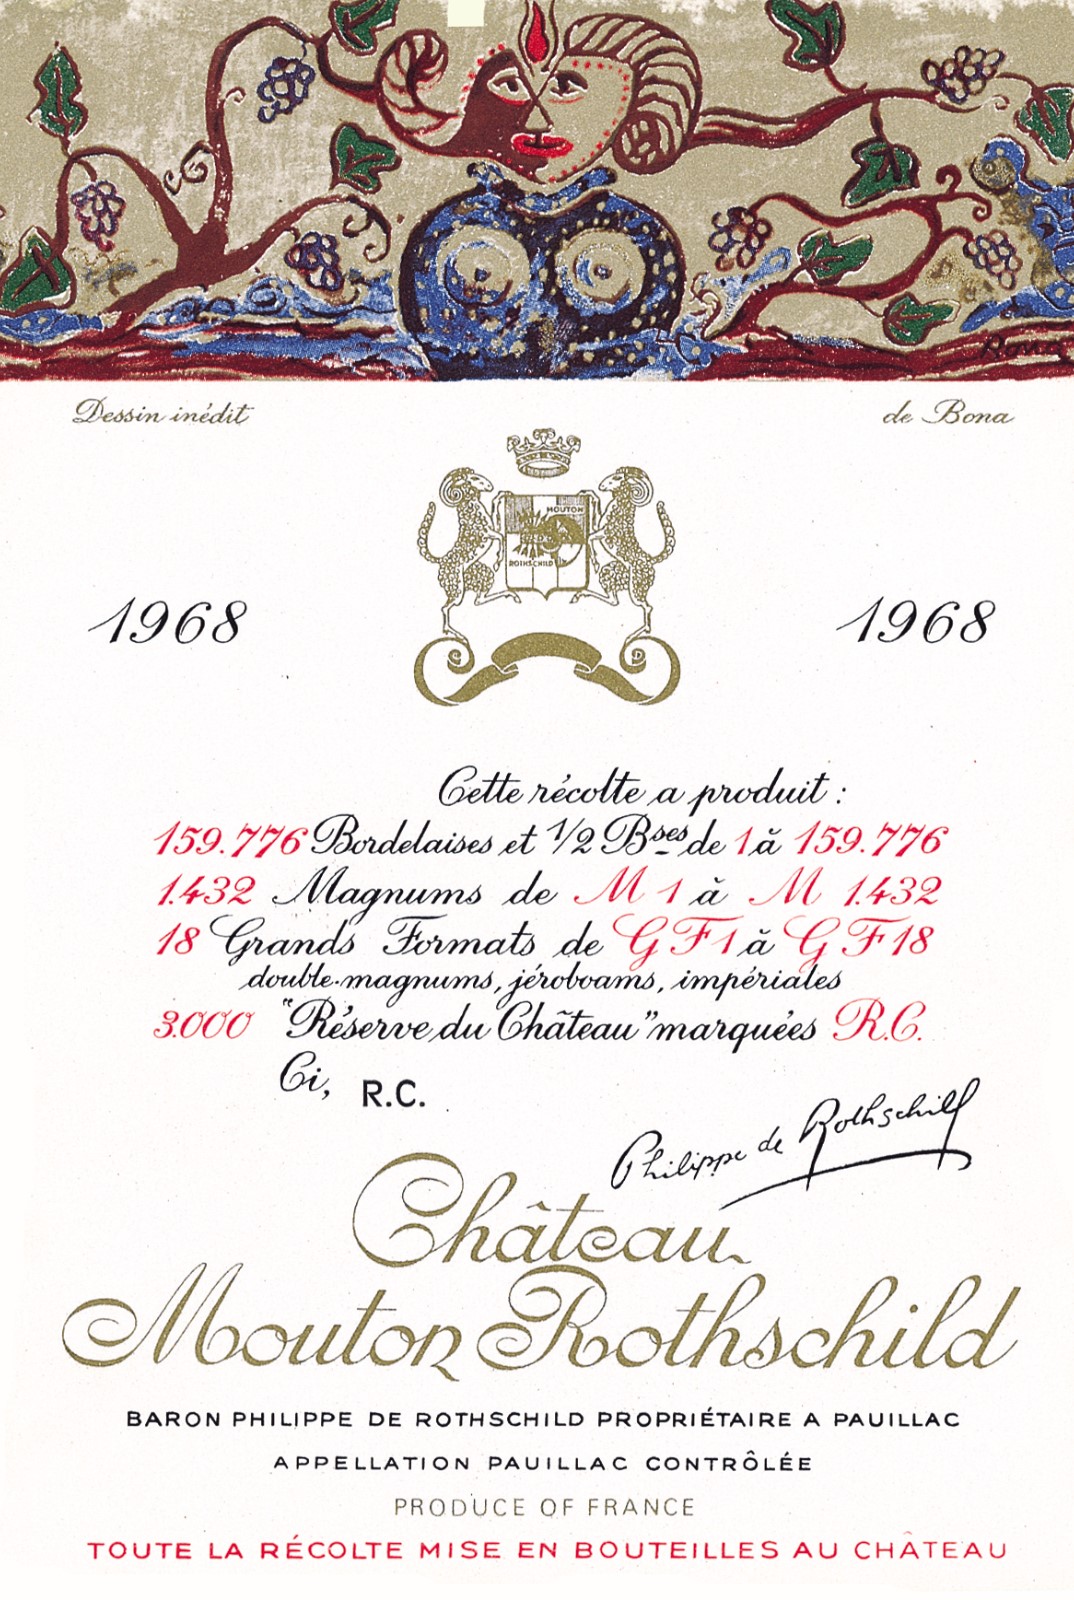 Bona
Dessin inédit de Bona
MOUTON
ROTHSCHILD
1968 1968
Cette récolte a produit :
159.776 Bordelaises et 1/2 Bses de 1 à 159.776
1.432 Magnums de M 1 à M 1.432
18 Grands Formats de G F 1 à G F 18
double-magnums, jéroboams, impériales
3.000 "Réserve du Château" marquées R.C.
Ci, R.C.
Philippe de Rothschild
Château
Mouton Rothschild
BARON PHILIPPE DE ROTHSCHILD PROPRIÉTAIRE A PAUILLAC
APPELLATION PAUILLAC CONTRÔLÉE
PRODUCE OF FRANCE
TOUTE LA RÉCOLTE MISE EN BOUTEILLES AU CHÂTEAU